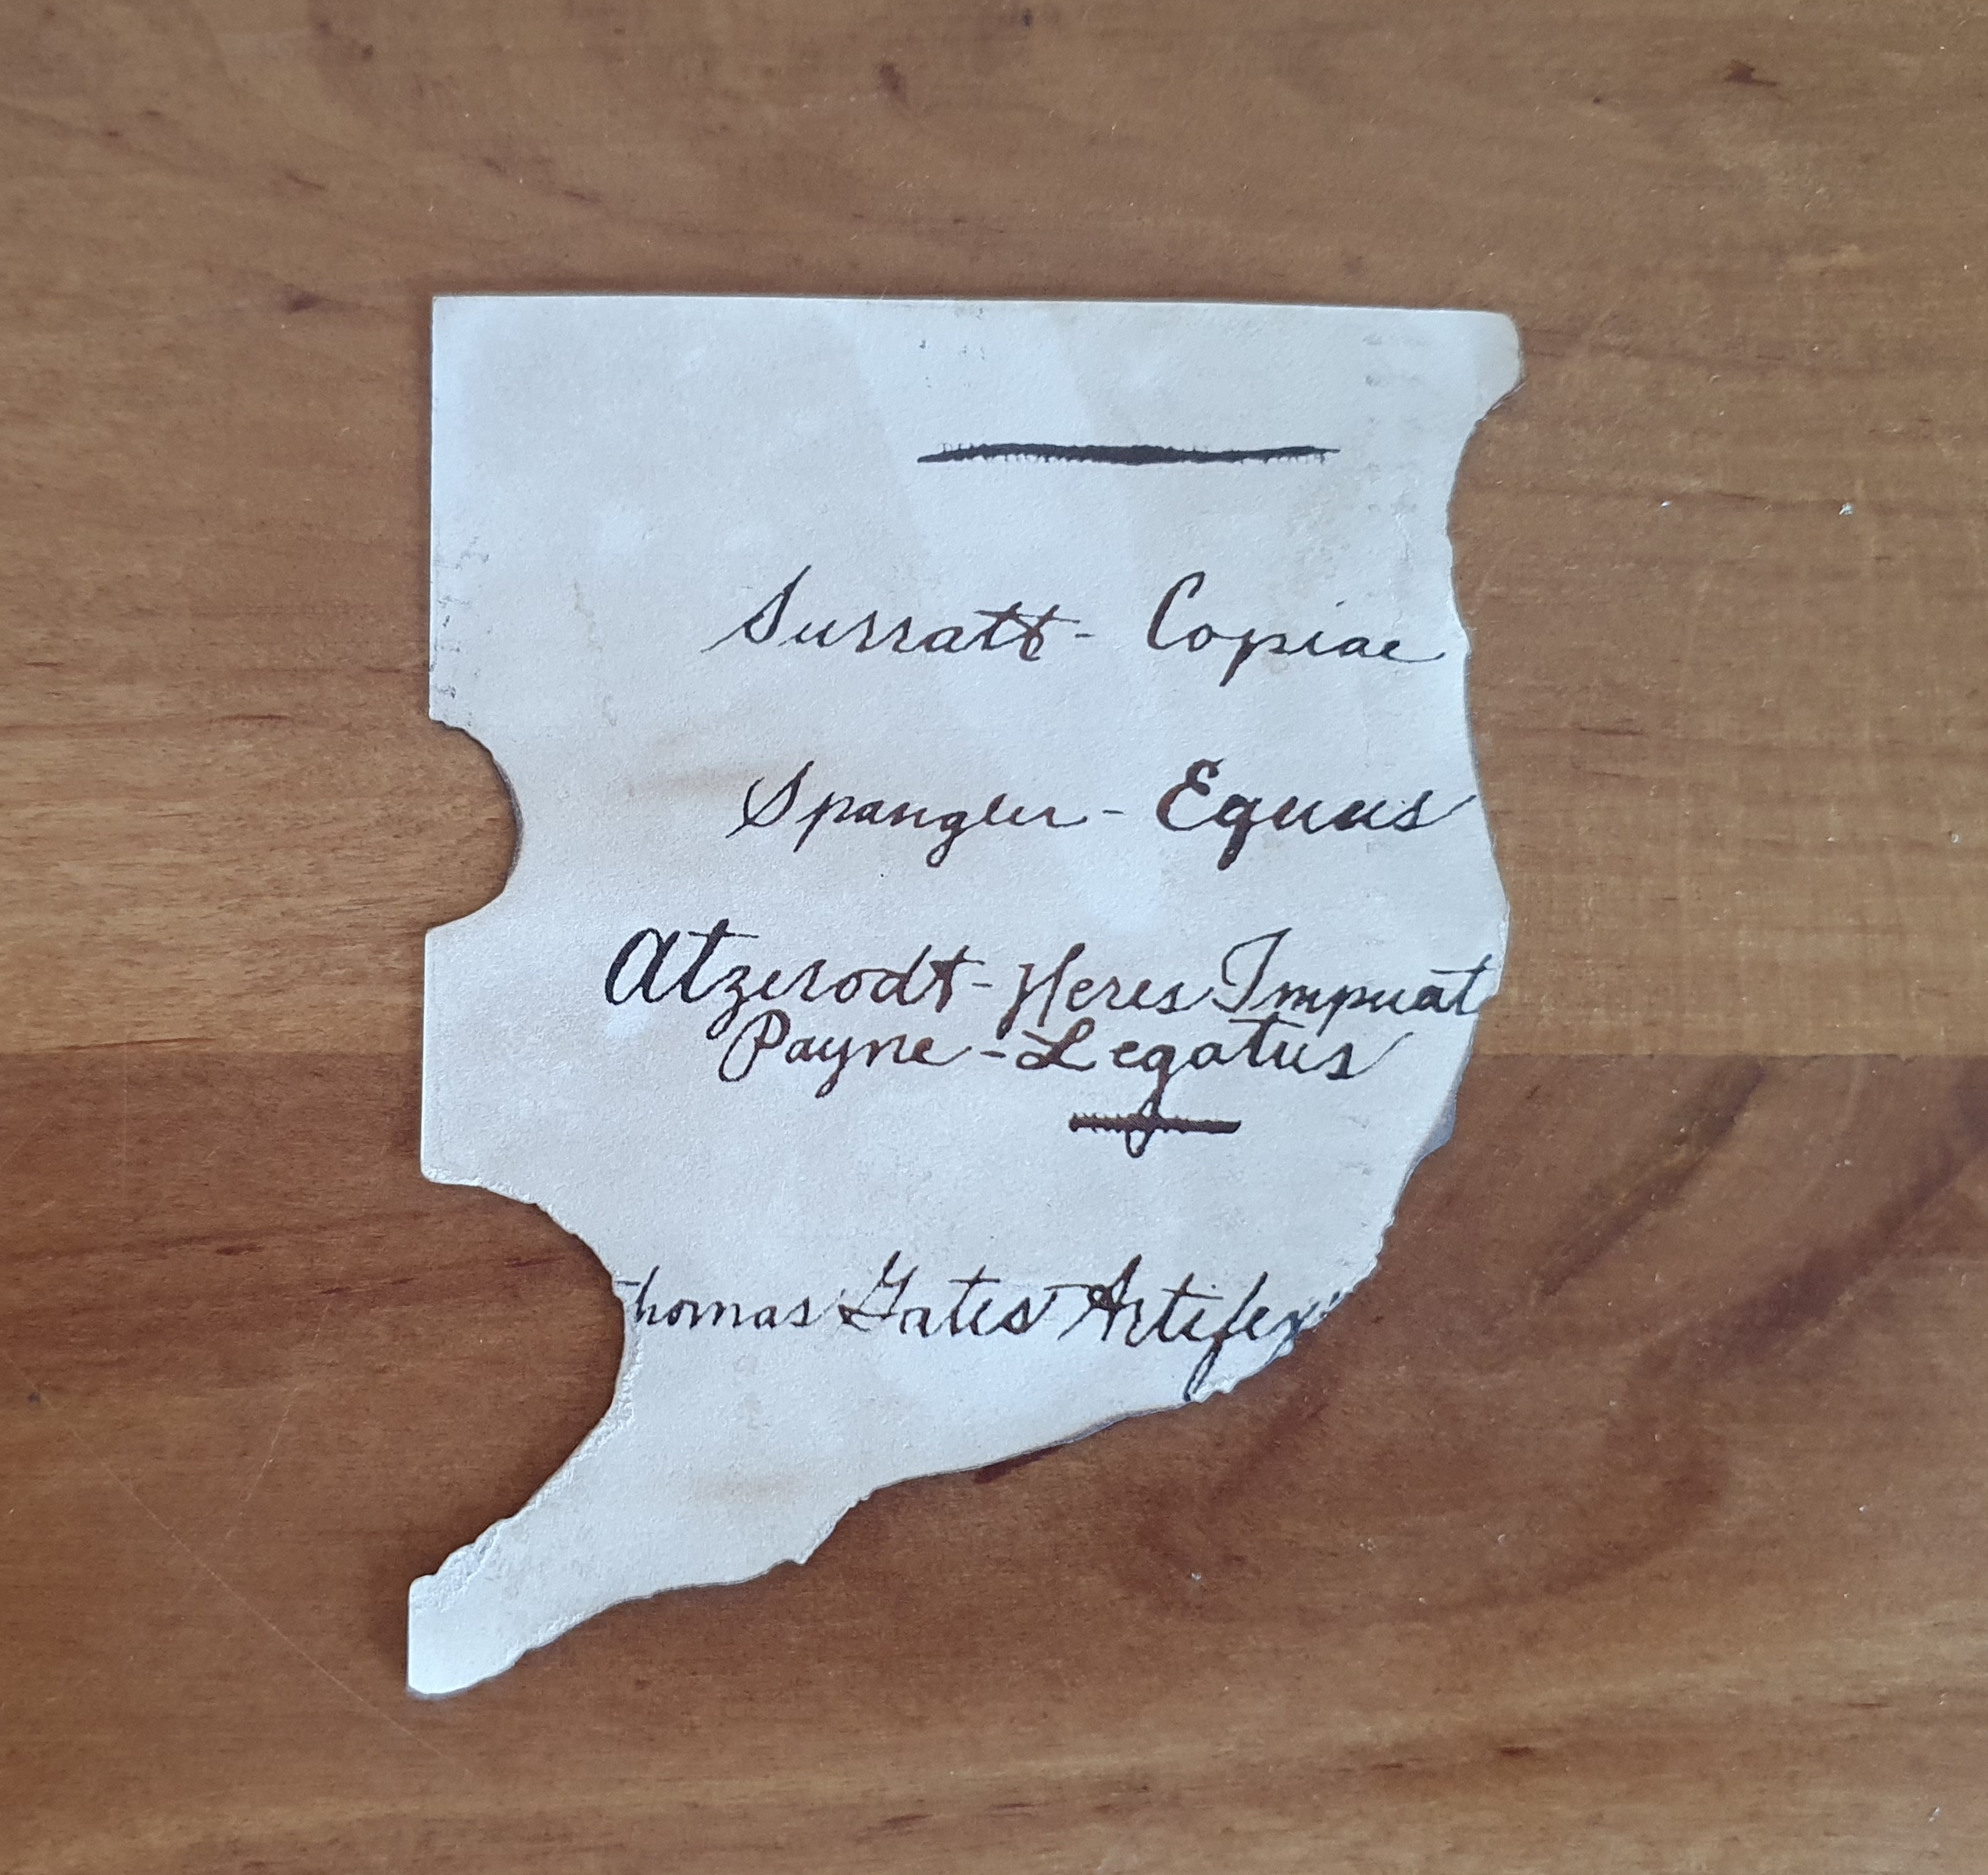 Surratt - Copiae
Spangler - Equus
Atzerodt - Heres Impuat
Payne - Legatus
Thomas Gates Artifex